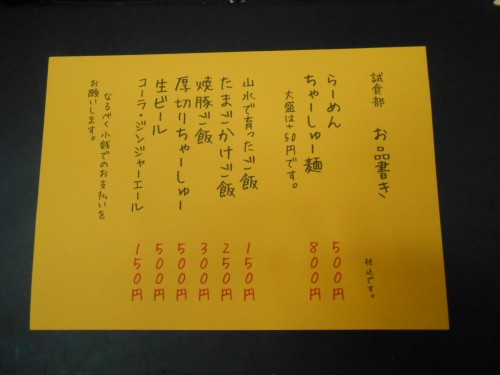 試食部 お品書き
税込です。
らーめん 500円
ちゃーしゅー麺 800円
大盛は+50円です。
山水で育ったご飯 150円
たまごかけご飯 250円
焼豚ご飯 300円
厚切りちゃーしゅー 500円
生ビール 500円
コーラ・ジンジャーエール 150円
なるべく小銭でのお支払いを
お願いします。